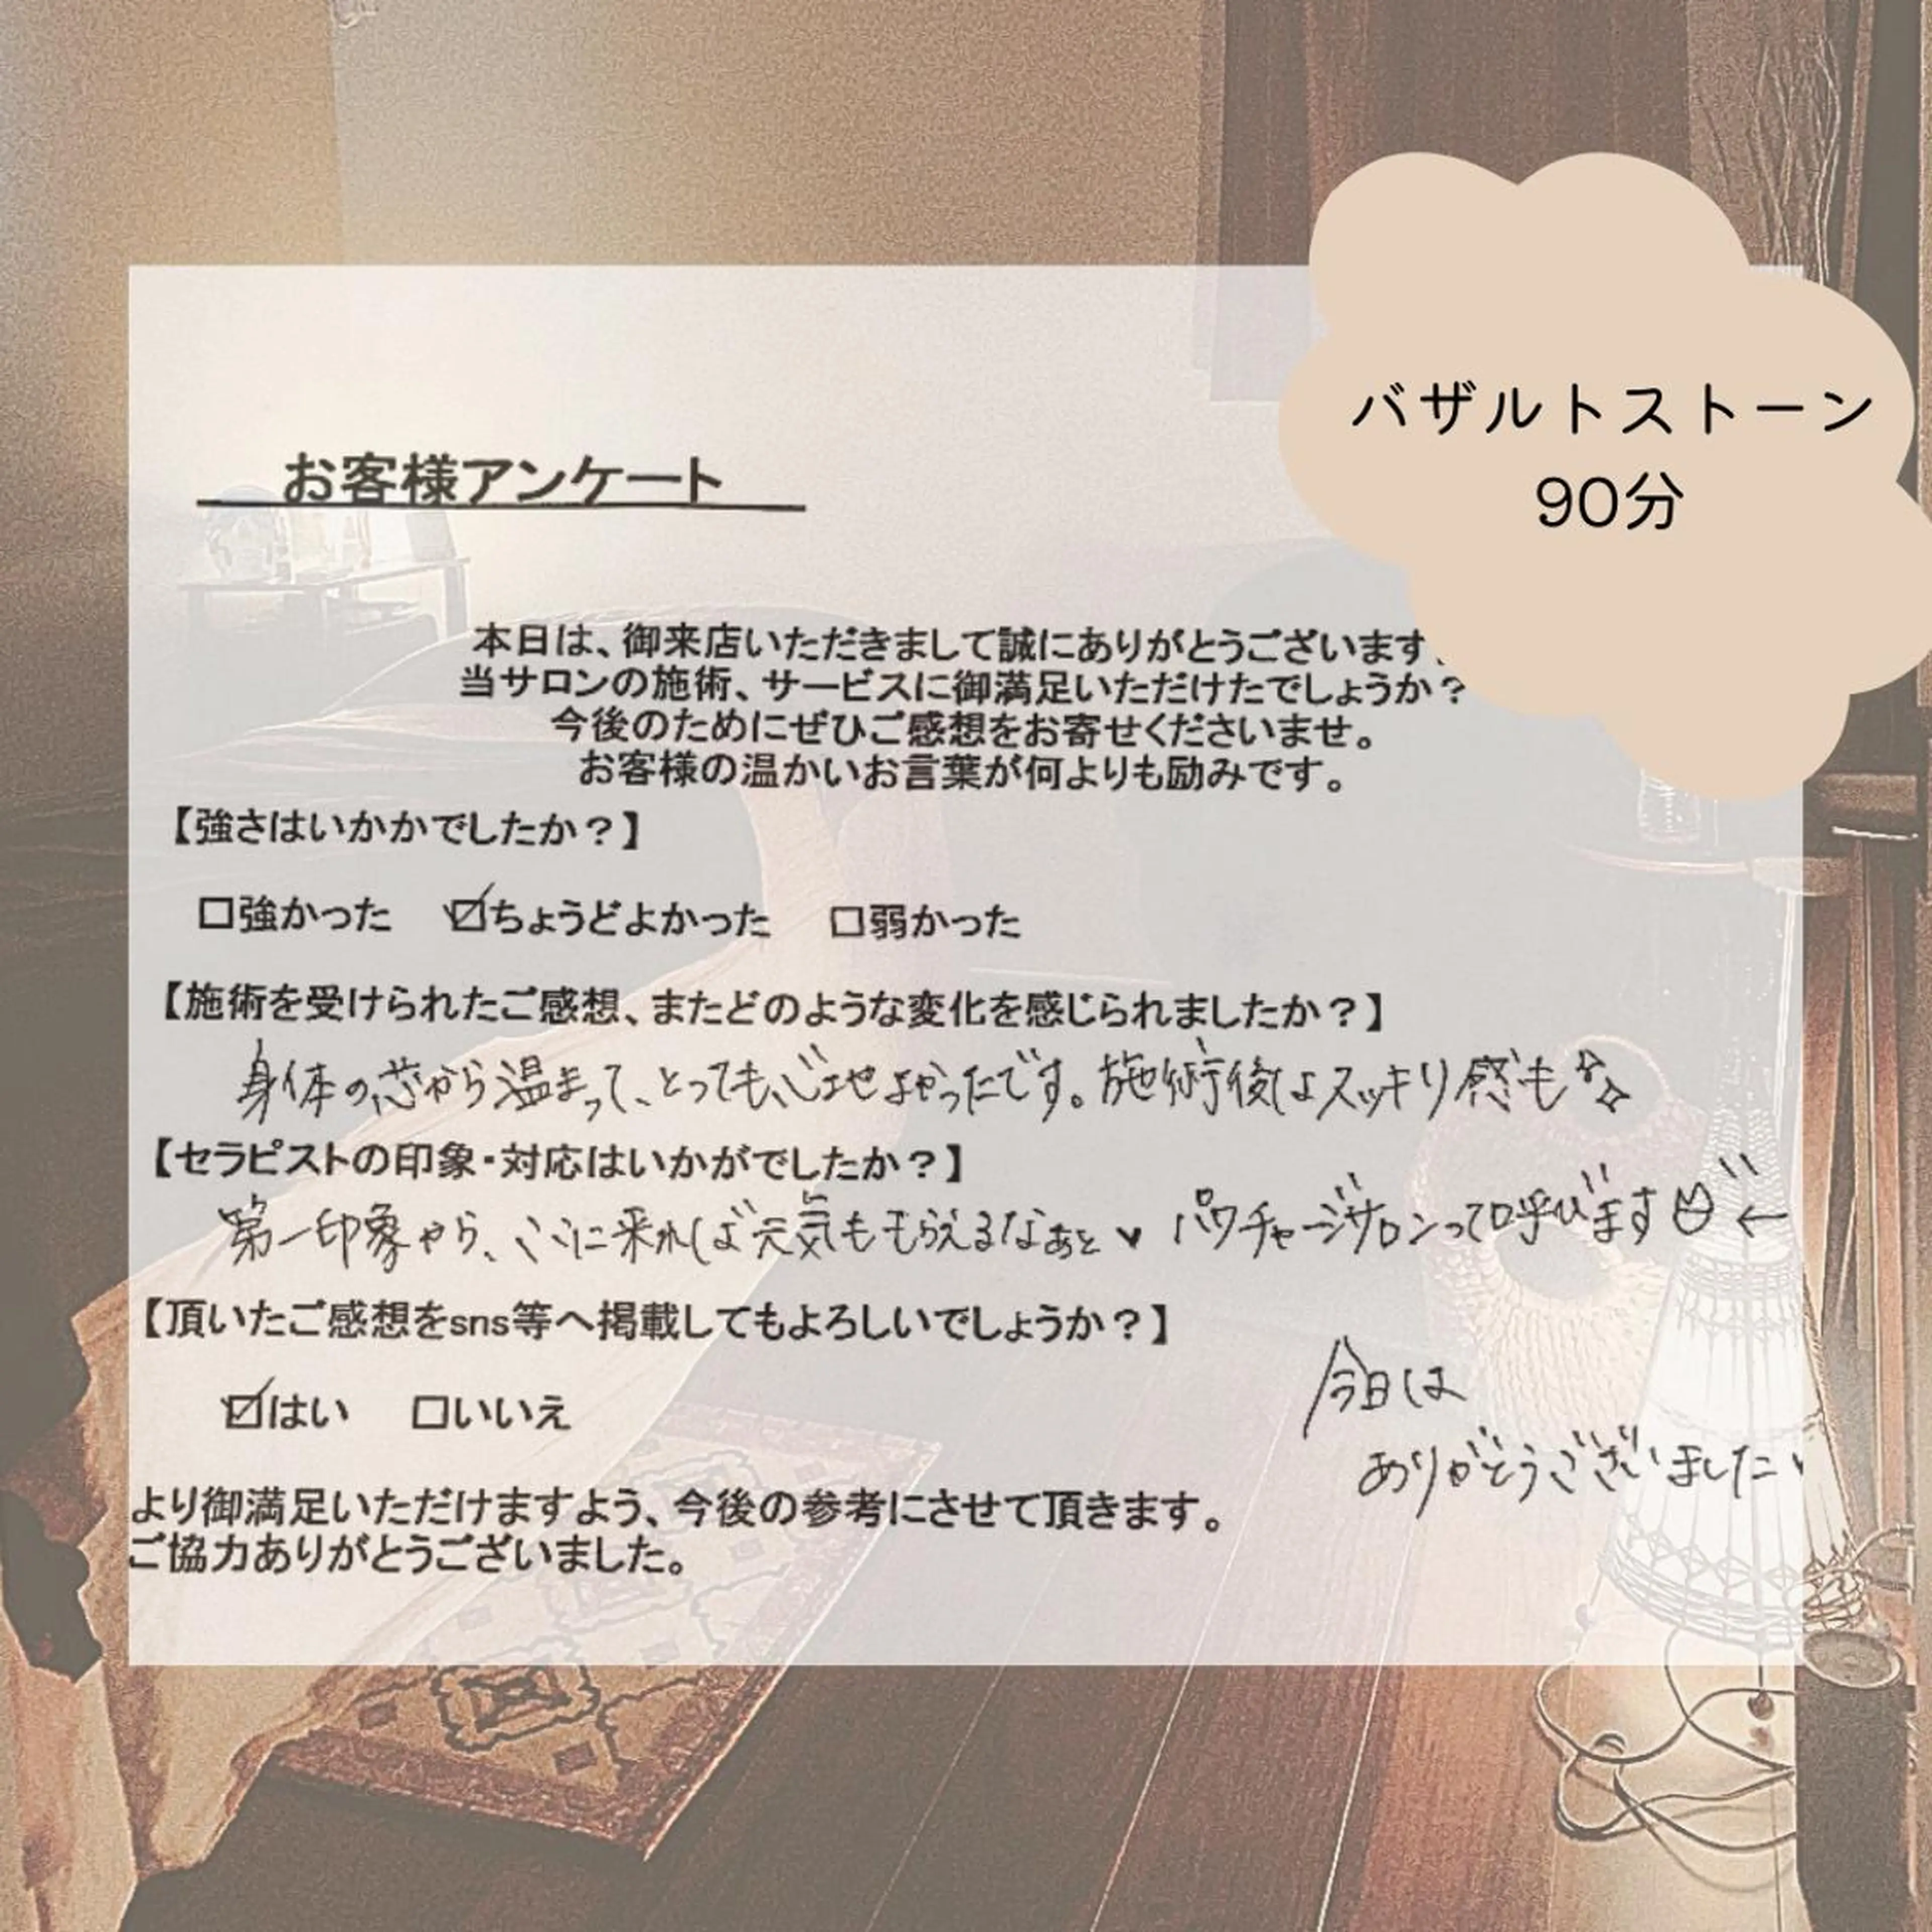 バザルトストーン
90分
お客様アンケート
本日は、御来店いただきまして誠にありがとうございます
当サロンの施術、サービスに御満足いただけたでしょうか？
今後のためにぜひご感想をお寄せくださいませ。
お客様の温かいお言葉が何よりも励みです。
【強さはいかかでしたか？】
□強かった ☑ちょうどよかった □弱かった
【施術を受けられたご感想、またどのような変化を感じられましたか？】
身体の芯から温まって、とっても心地よかったです。施術後はスッキリ感も
【セラピストの印象・対応はいかがでしたか？】
第一印象から、ここに来れば元気ももらえるなぁと♥ パワチャージサロンって呼びます ←
【頂いたご感想をsns等へ掲載してもよろしいでしょうか？】
☑はい □いいえ
今日は
ありがとうございました
より御満足いただけますよう、今後の参考にさせて頂きます。
ご協力ありがとうございました。